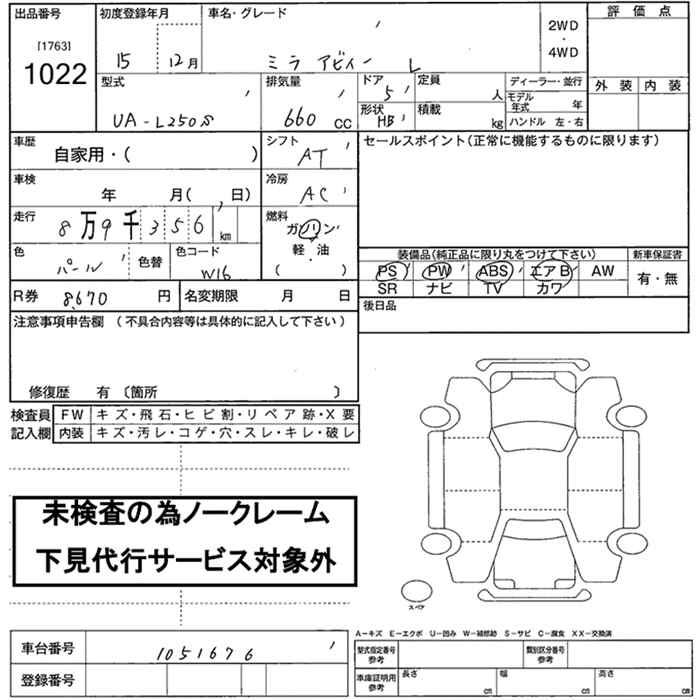 出品番号 初度登録年月 車名・グレード 2WD ・ 4WD 評価点
[1763]
1022
15 12月 ミラ アビィー L
型式 排気量 ドア 定員 ディーラー・並行 外装 内装
UA-L250S 660 CC 5 人 モデル年式 年
形状 積載 HB kg ハンドル 左・右
車歴 自家用・( ) シフト AT セールスポイント(正常に機能するものに限ります)
車検 年 月( 日) 冷房 AC
走行 8万9千356 km 燃料 ガソリン 軽・油 ( )
色 パール 色替 色コード W16
装備品(純正品に限り丸をつけて下さい) 新車保証書
PS PW ABS エアB AW 有・無
SR ナビ TV カワ
R券 8,670 円 名変期限 月 日 後日品
注意事項申告欄 (不具合内容等は具体的に記入して下さい)
修復歴 有 〔箇所 〕
検査員 FW キズ・飛石・ヒビ割・リペア跡・X要
記入欄 内装 キズ・汚レ・コゲ・穴・スレ・キレ・破レ
未検査の為ノークレーム
下見代行サービス対象外
スペア
A-キズ E-エクボ U-凹み W-補修跡 S-サビ C-腐食 XX-交換済
車台番号 1051676 型式指定番号 参考 類別区分番号 参考
登録番号 車庫証明用 参考 長さ cm 幅 cm 高さ cm